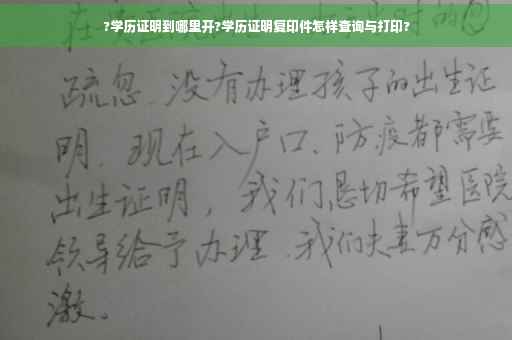 ?学历证明到哪里开?学历证明复印件怎样查询与打印?
在
时的
疏忽、没有办理孩子的出生证
明、现在入户口、防疫都需要
出生证明，我们恳切希望医院
领导给予办理、我们夫妻万分感
激。